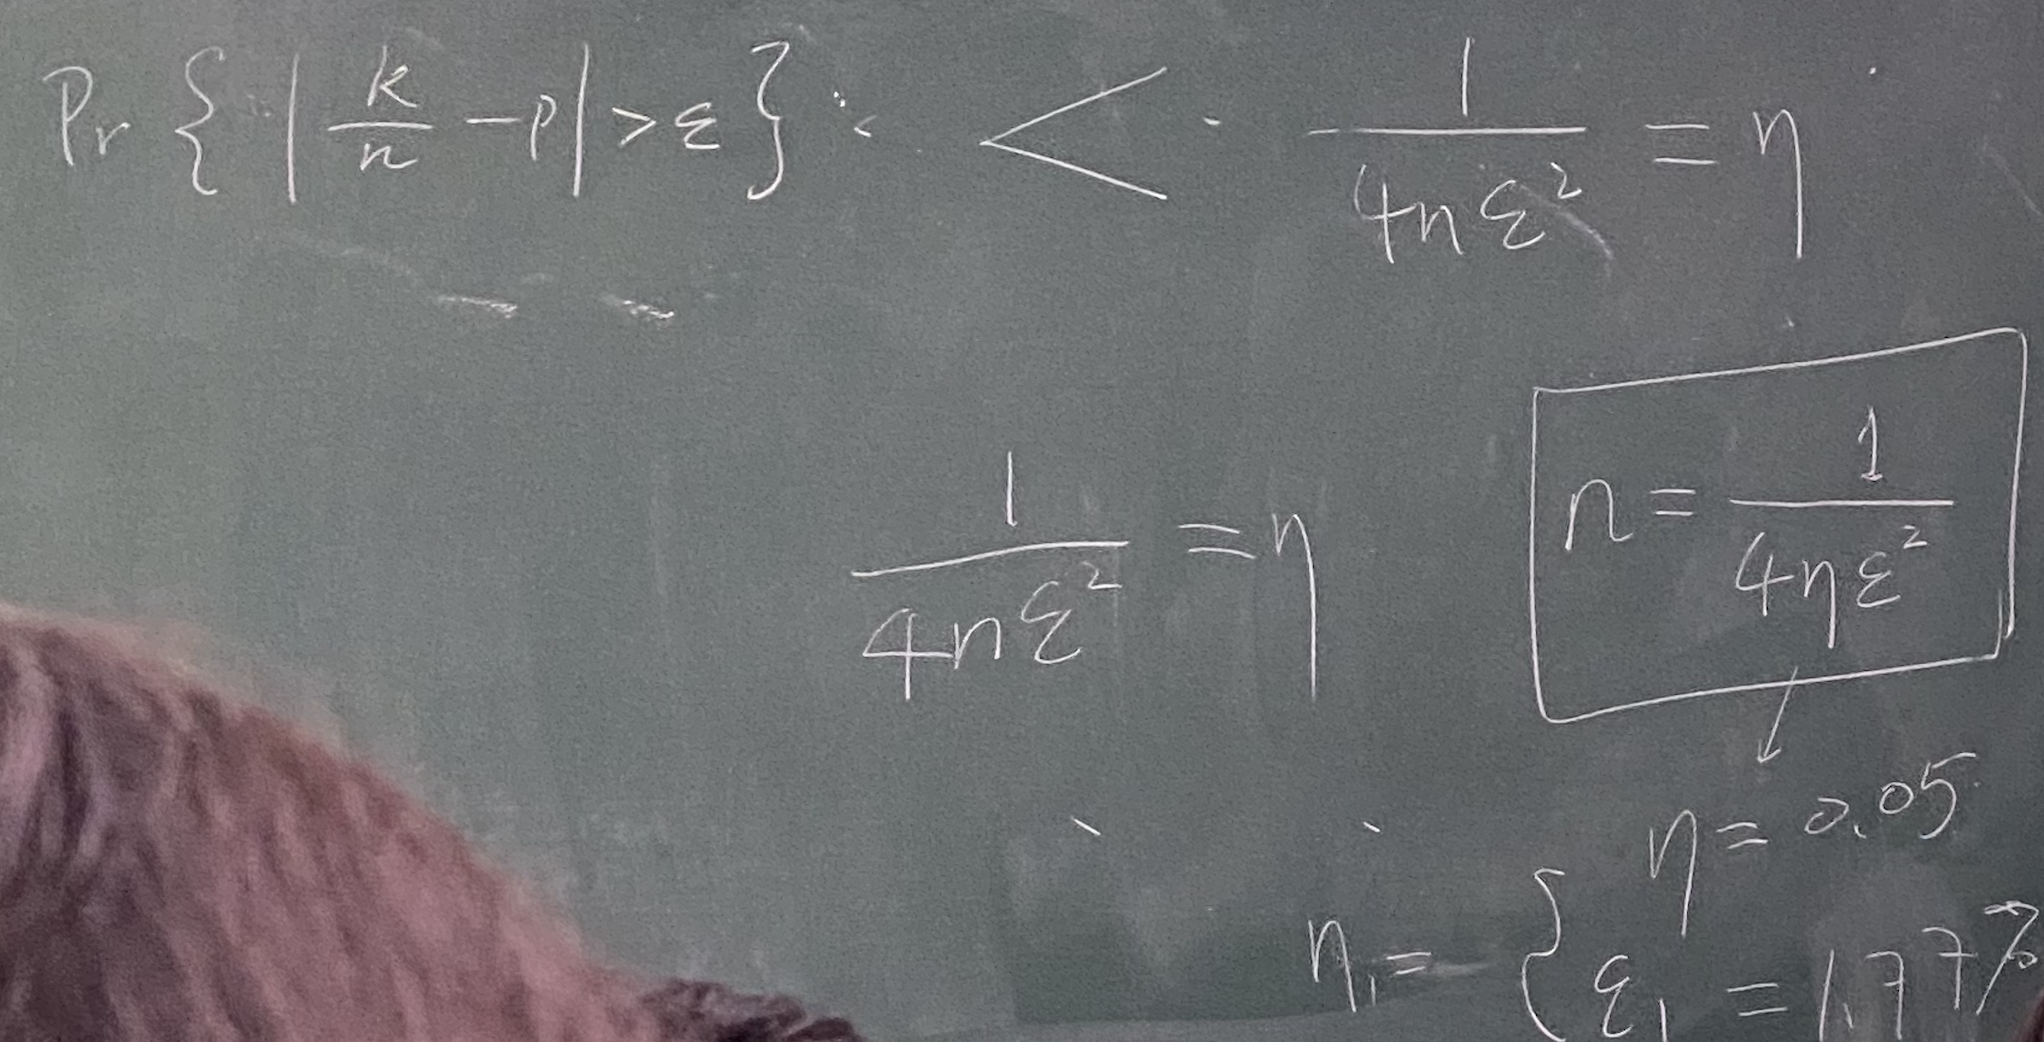 Pr { | k/n - p | > ε } < 1/(4nε²) = η
1/(4nε²) = η
n = 1/(4ηε²)
η = 0.05
n₁ = { ε₁ = 1.77%